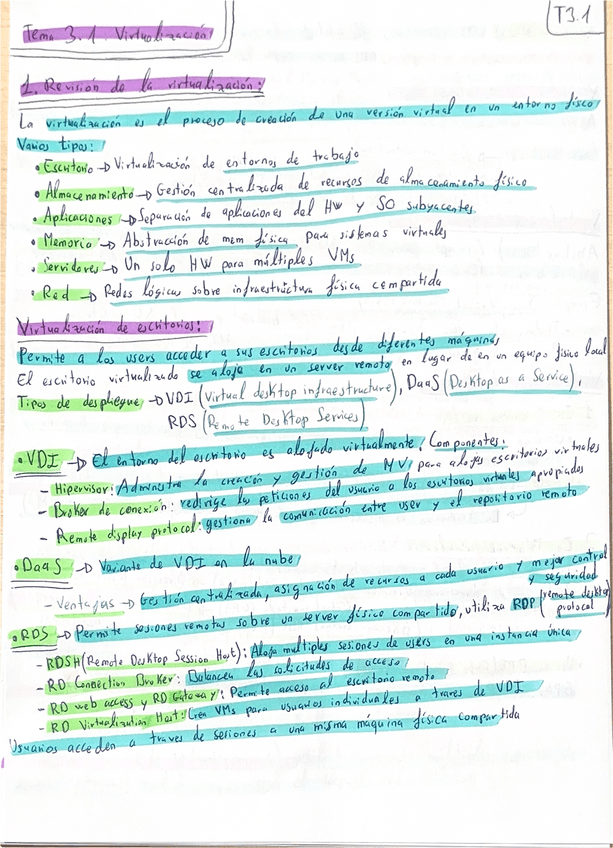 Tema 3.1 Virtualización
T3.1
1. Revisión de la virtualización:
La virtualización es el proceso de creación de una versión virtual en un entorno físico
Varios tipos:
• Escritorio → Virtualización de entornos de trabajo
• Almacenamiento → Gestión centralizada de recursos de almacenamiento físico
• Aplicaciones → Separación de aplicaciones del HW y SO subyacentes
• Memoria → Abstracción de mem física para sistemas virtuales
• Servidores → Un solo HW para múltiples VMs
• Red → Redes lógicas sobre infraestructura física compartida
Virtualización de escritorios:
Permite a los users acceder a sus escritorios desde diferentes máquinas
El escritorio virtualizado se aloja en un server remoto en lugar de en un equipo físico local
Tipos de despliegue → VDI (Virtual desktop infraestructure), DaaS (Desktop as a Service),
RDS (Remote Desktop Services)
• VDI → El entorno del escritorio es alojado virtualmente. Componentes:
- Hipervisor: Administra la creación y gestión de MV para alojar escritorios virtuales
- Broker de conexión: redirige las peticiones del usuario a los escritorios virtuales apropiados
- Remote display protocol: gestiona la comunicación entre user y el repositorio remoto
• DaaS → Variante de VDI en la nube
- Ventajas → Gestión centralizada, asignación de recursos a cada usuario y mejor control
y seguridad
• RDS → Permite sesiones remotas sobre un server físico compartido, utiliza RDP (remote desktop
protocol)
- RDSH (Remote Desktop Session Host): Aloja multiples sesiones de users en una instancia única
- RD Connection Broker: Balancea las solicitudes de acceso
- RD web access y RD Gateway: Permite acceso al escritorio remoto
- RD Virtualization Host: Crea VMs para usuarios individuales a traves de VDI
Usuarios acceden a traves de sesiones a una misma máquina física compartida